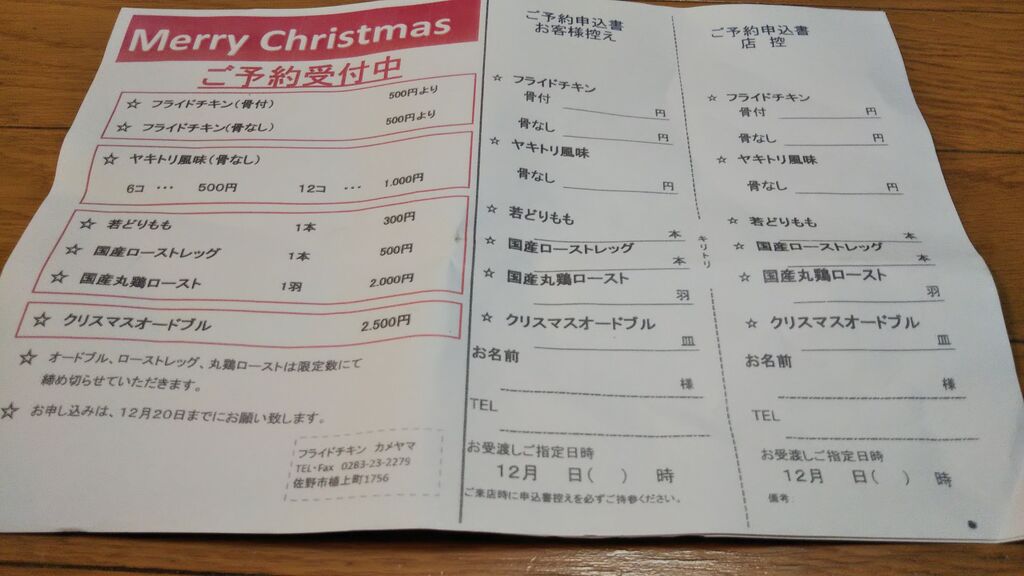 Merry Christmas
ご予約受付中
☆ フライドチキン(骨付) 500円より
☆ フライドチキン(骨なし) 500円より
☆ ヤキトリ風味(骨なし)
6コ ・・・ 500円 12コ ・・・ 1.000円
☆ 若どりもも 1本 300円
☆ 国産ローストレッグ 1本 500円
☆ 国産丸鶏ロースト 1羽 2.000円
☆ クリスマスオードブル 2.500円
☆ オードブル、ローストレッグ、丸鶏ローストは限定数にて
締め切らせていただきます。
☆ お申し込みは、12月20日までにお願い致します。
フライドチキン カメヤマ
TEL・Fax 0283-23-2279
佐野市植上町1756
ご予約申込書
お客様控え
☆ フライドチキン
骨付 円
骨なし 円
☆ ヤキトリ風味
骨なし 円
☆ 若どりもも
本
☆ 国産ローストレッグ
本
☆ 国産丸鶏ロースト
羽
☆ クリスマスオードブル
皿
お名前
様
TEL
お受渡しご指定日時
12月 日( ) 時
ご来店時に申込書控えを必ずご持参ください。
キリトリ
ご予約申込書
店 控
☆ フライドチキン
骨付 円
骨なし 円
☆ ヤキトリ風味
骨なし 円
☆ 若どりもも
本
☆ 国産ローストレッグ
本
☆ 国産丸鶏ロースト
羽
☆ クリスマスオードブル
皿
お名前
様
TEL
お受渡しご指定日時
12月 日( ) 時
備考